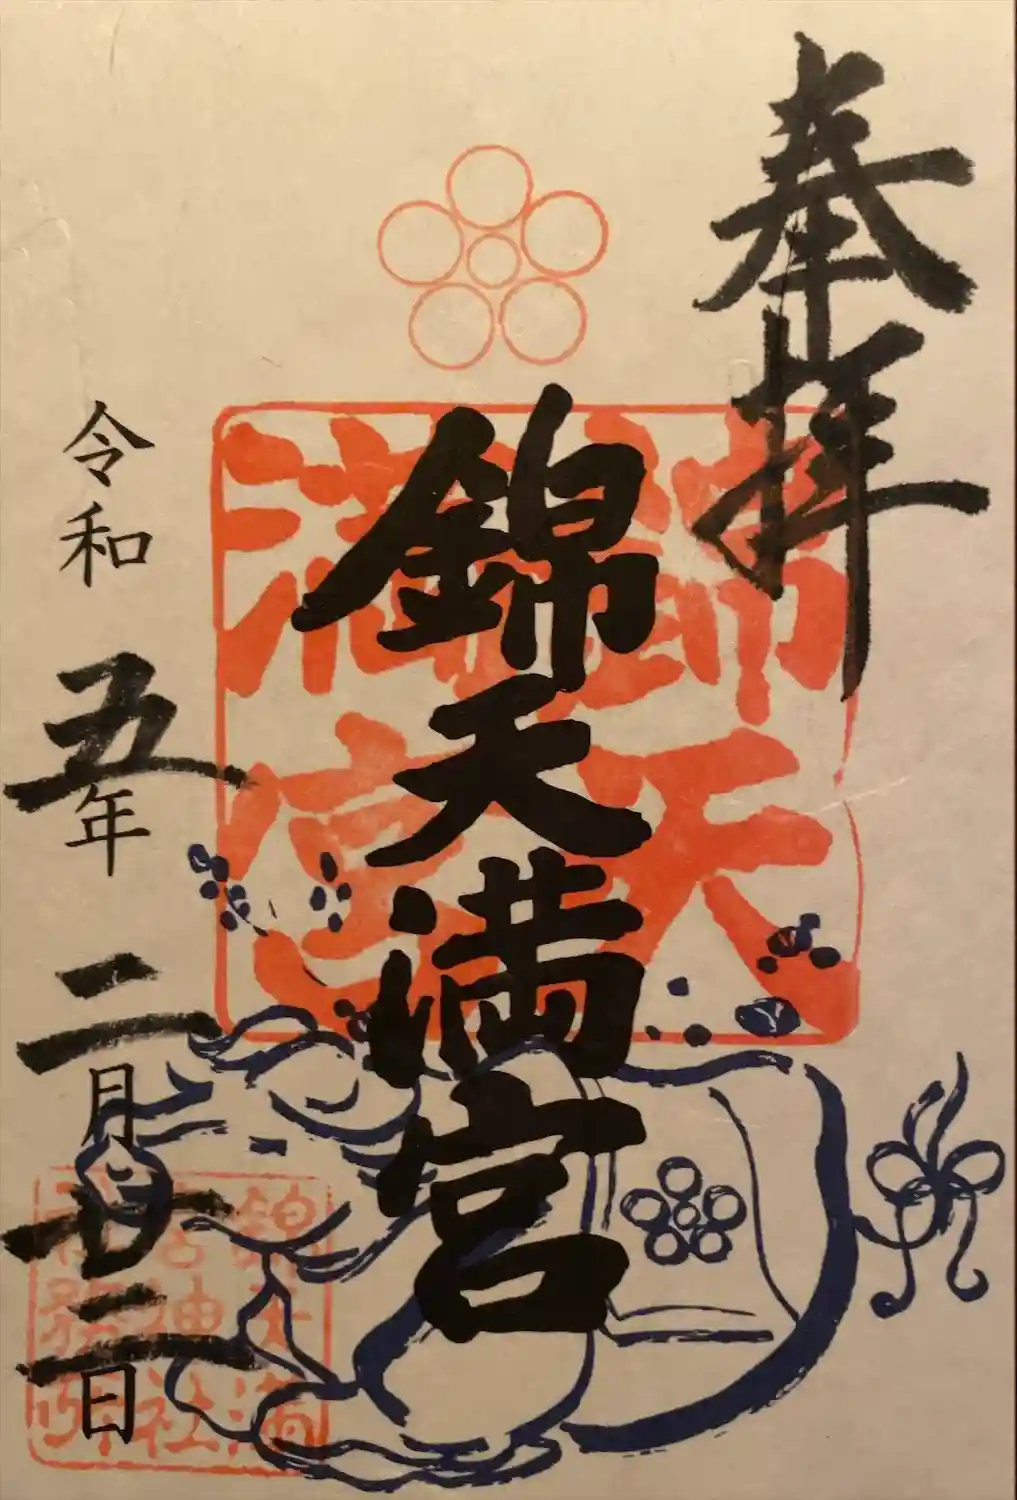 奉拝
錦天満宮
錦天
満宮
令和五年二月廿三日
錦天満
宮神社
社務所